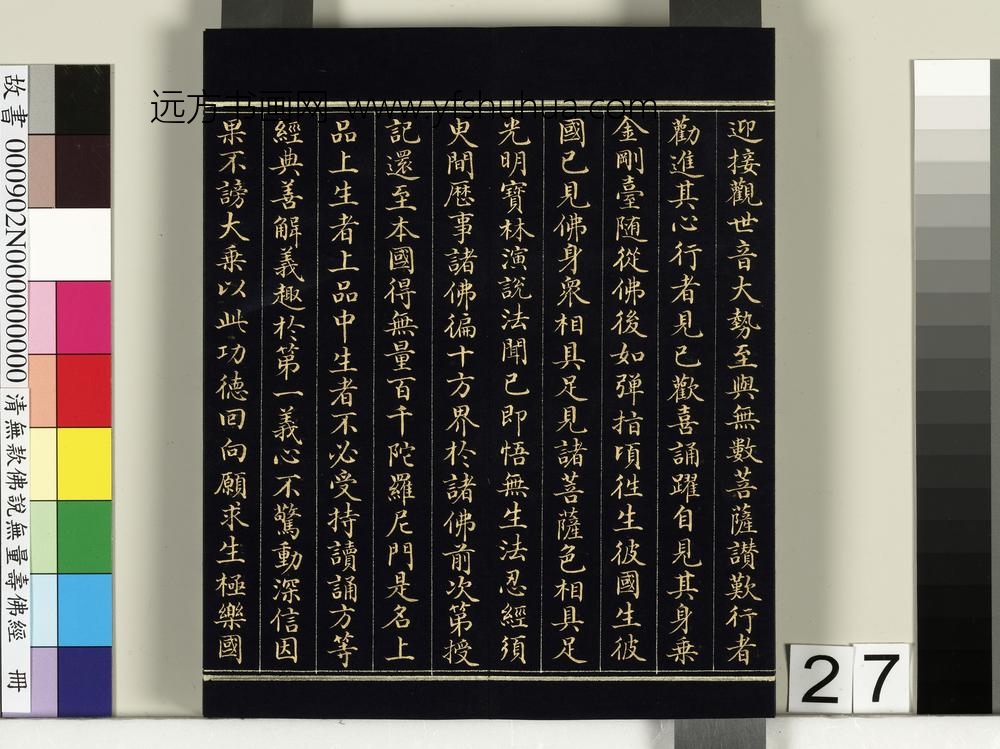 迎接觀世音大勢至與無數菩薩讃歎行者
勸進其心行者見已歡喜誦躍自見其身乗
金剛臺随從佛後如弾指頃徃生彼國生彼
國已見佛身衆相具足見諸菩薩色相具足
光明寶林演説法聞已即悟無生法忍經須
㬰間歴事諸佛徧十方界於諸佛前次第授
記還至本國得無量百千陀羅尼門是名上
品上生者上品中生者不必受持讀誦方等
經典善解義趣於第一義心不驚動深信因
果不謗大乗以此功德回向願求生極樂國
远方书画网 www.yfshuhua.com
故書 000902N000000000
清無款佛說無量壽佛經 冊
27